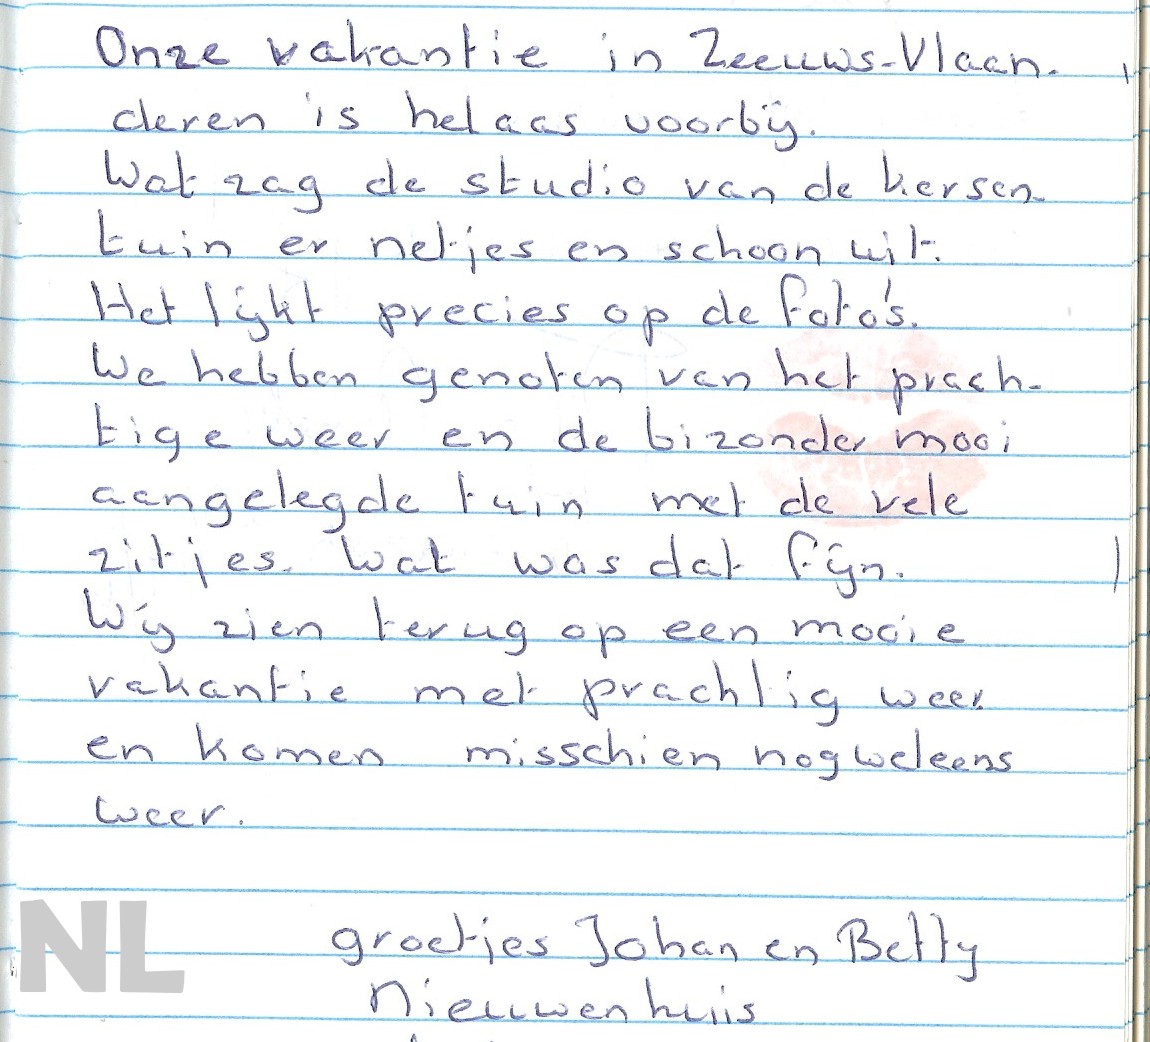 Onze vakantie in Zeeuws-Vlaan-
deren is helaas voorbij.
Wat zag de studio van de kersen-
tuin er netjes en schoon uit.
Het lijkt precies op de foto's.
We hebben genoten van het prach-
tige weer en de bizonder mooi
aangelegde tuin met de vele
zitjes. Wat was dat fijn.
Wij zien terug op een mooie
vakantie met prachtig weer
en komen misschien nog weleens
weer.
groetjes Johan en Betty
Nieuwenhuis
NL